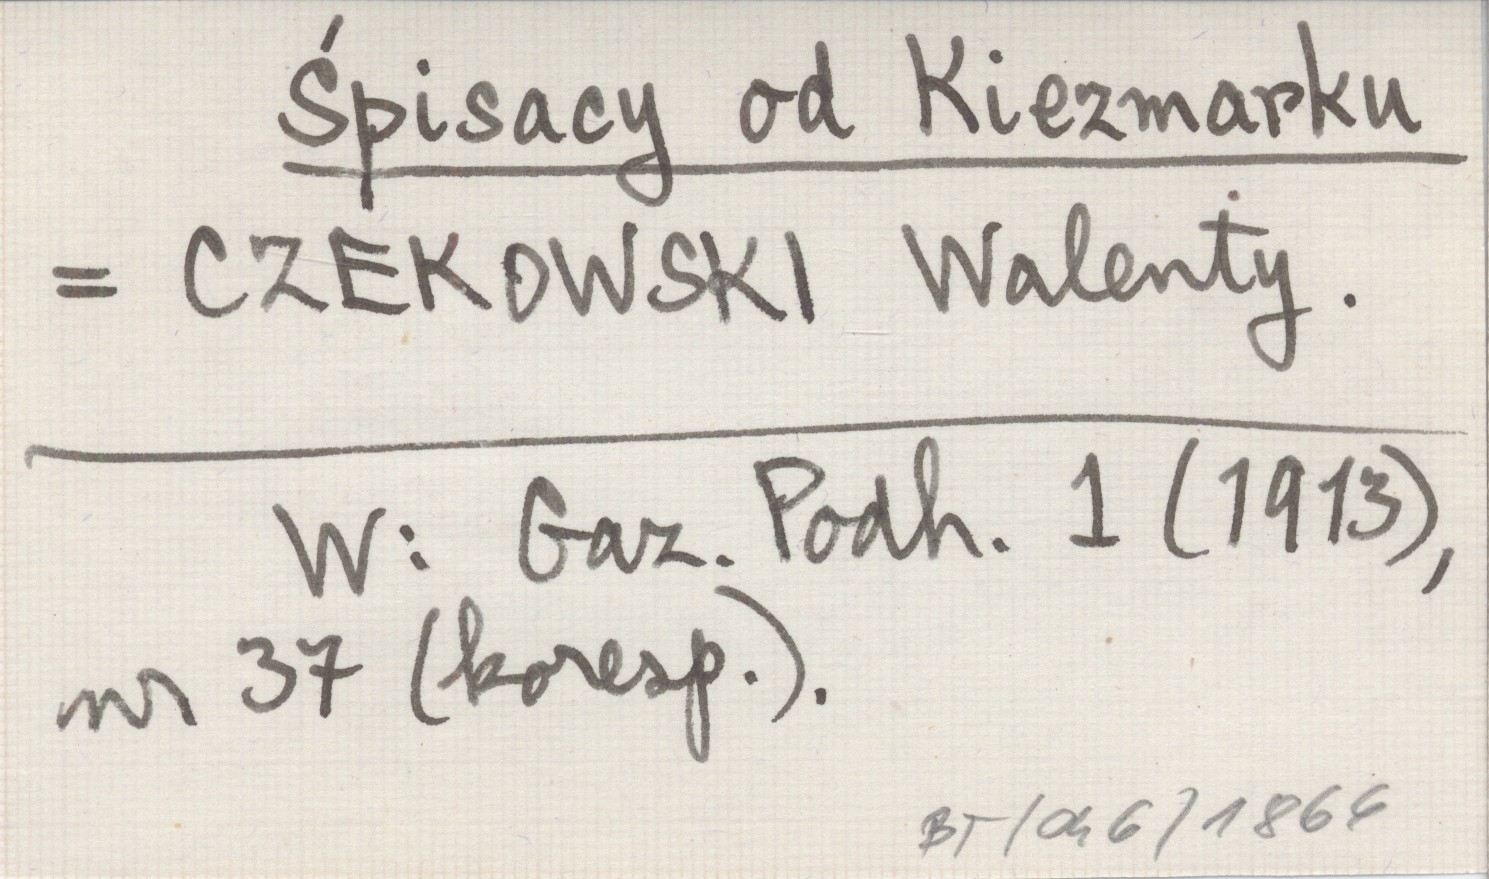 Śpisacy od Kiezmarku
= CZEKOWSKI Walenty.
W: Gaz. Podh. 1 (1913),
nr 37 (koresp.).
BT/046/1866